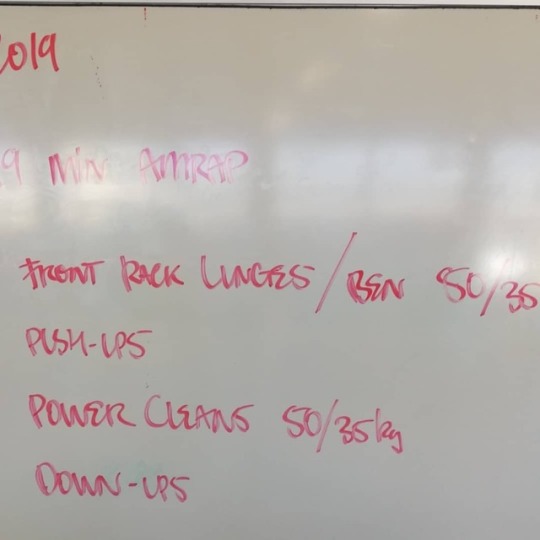 2019
9 MIN AMRAP
FRONT RACK LUNGES / BEN 50/35
PUSH-UPS
POWER CLEANS 50/35kg
DOWN-UPS